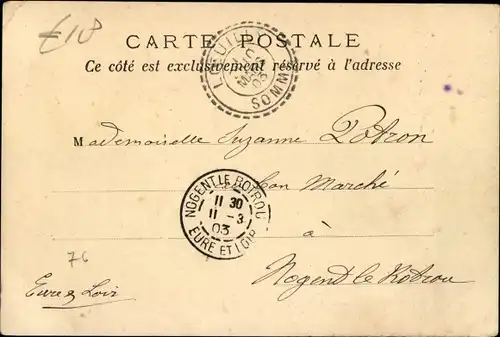 £18
CARTE POSTALE
Ce côté est exclusivement réservé à l'adresse
LOEUILLY
MARS
03
SOMME
Mademoiselle Suzanne Potron
Bon Marché
NOGENT-LE-ROTROU
11 30
11 -3
03
EURE ET LOIR
à
76
Nogent le Rotrou
Eure & Loir